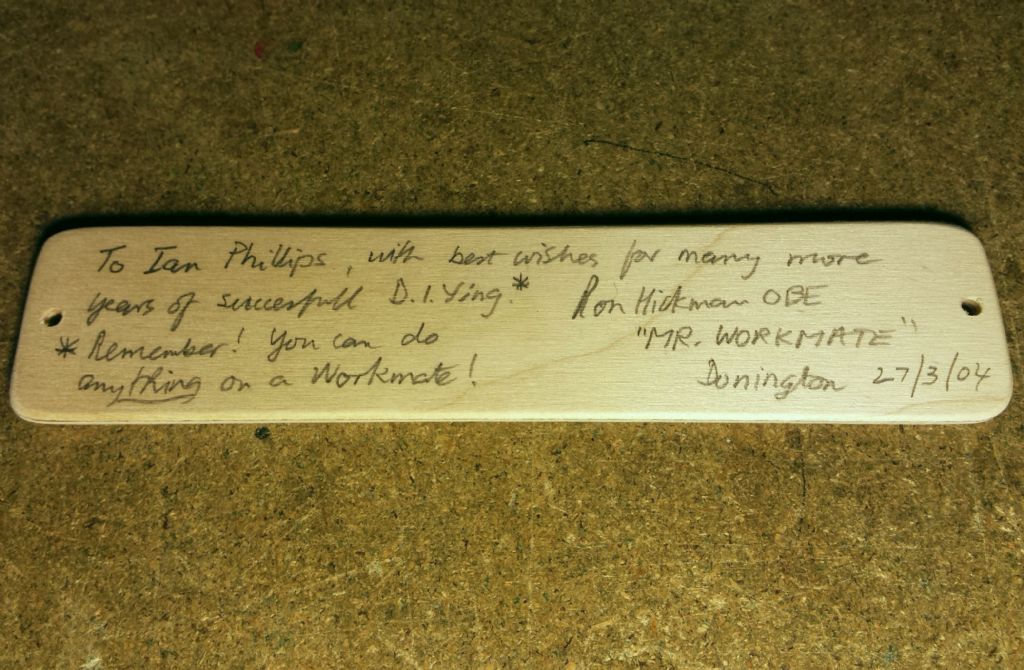 To Ian Phillips, with best wishes for many more
years of succesfull D.I.Ying.*
Ron Hickman OBE
* Remember! You can do
"MR. WORKMATE"
anything on a Workmate!
Donington 27/3/04